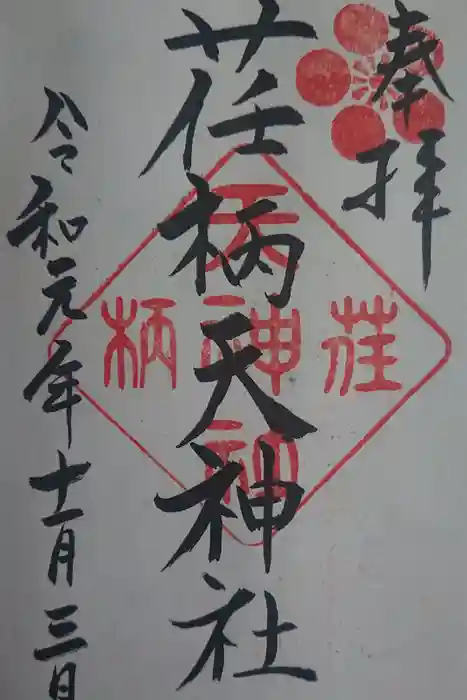 奉拝
荏柄天神社
令和元年十一月三日
荏
柄